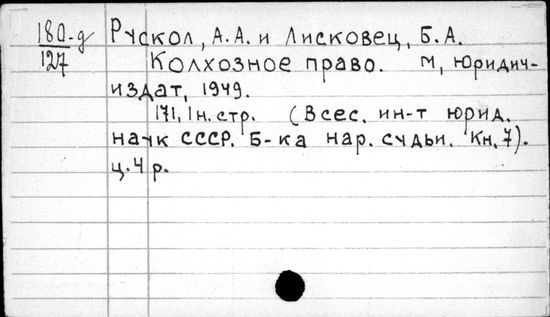 180-д Рускол, А.А. и Лисковец, Б.А.
127 Колхозное право. М, Юридич-
издат, 1949.
171, 1н.стр. (Всес. ин-т юрид.
наук СССР. Б-ка нар. судьи. Кн. 7).
ц. 4 р.